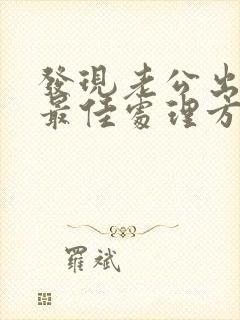 發現老公出
最佳處理方
羅斌